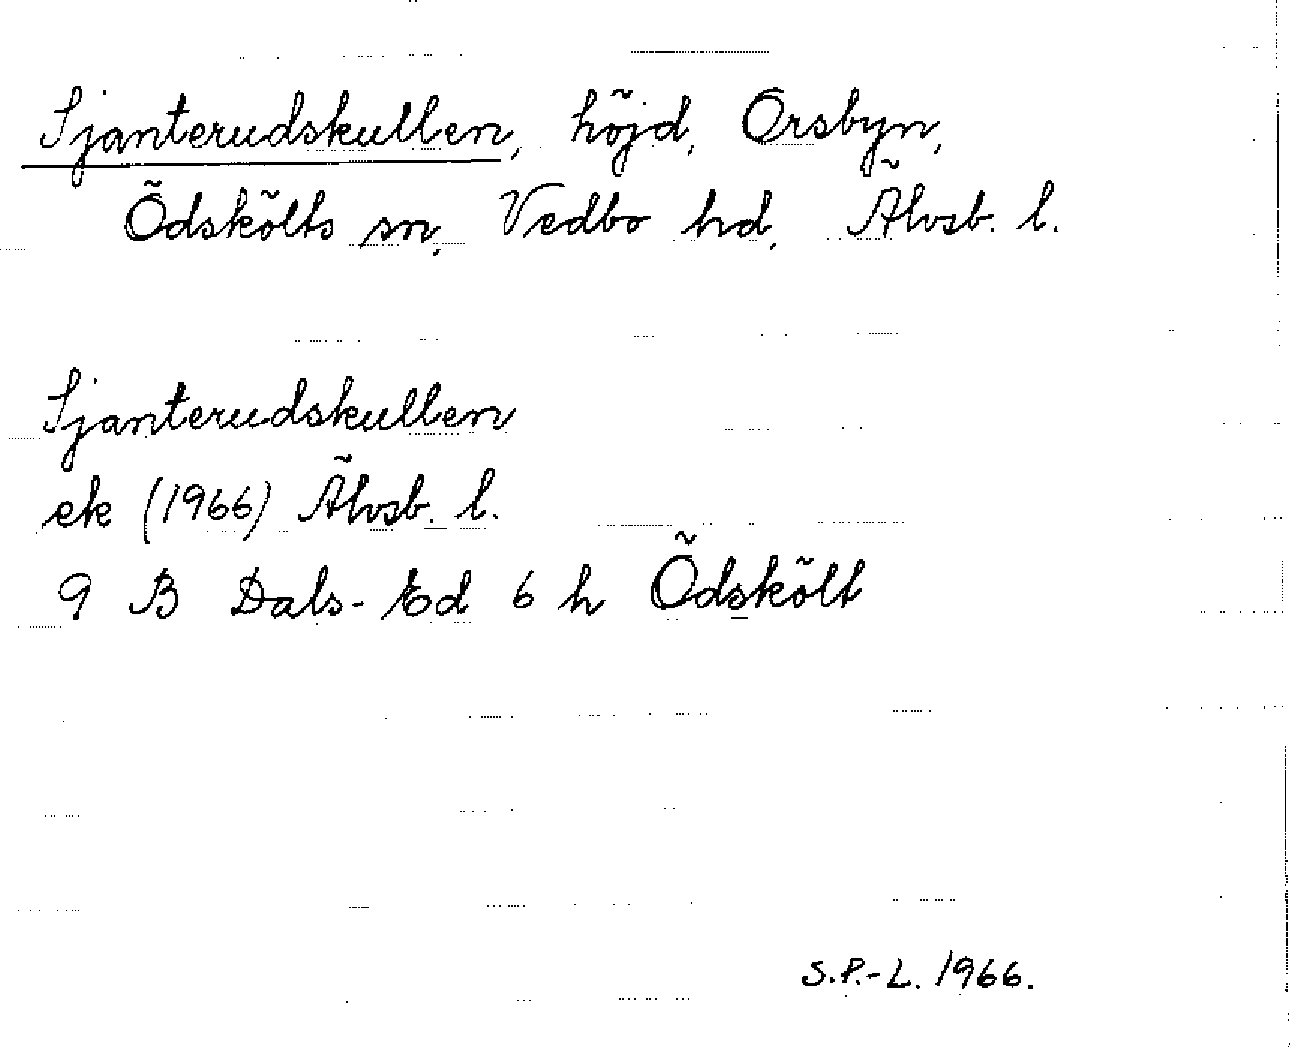 Sjanterudskullen, höjd, Orsbyn,
Ödskölts sn, Vedbo hd, Älvsb. l.
Sjanterudskullen
ek (1966) Älvsb. l.
9 B Dals-Ed 6 h Ödskölt
S.P.-L. 1966.